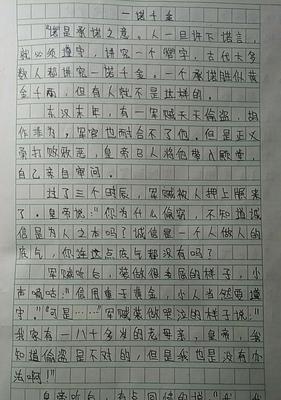 一诺千金
"诺是承诺之意。人一旦许下诺言，
就必须遵守，讲究一个"智"字，古代大多
数人都讲究一诺千金。一个承诺胜似黄
金千两，但有人就不是这样的。
东汉末年，有一军贼天天偷盗，胡
作非为，军官也耐合不了他，但是正义
勇打败败恶，皇帝已人将他带入殿堂，
自己亲自审问。
过了三个时辰，军贼被人押上殿来
了。皇帝说："你为什么偷窃，不知道诚
信是为人之本吗？诚信是一个人做人的
底气，你连这点底气都没有吗？
军贼听后，装做很委屈的样子，小
声嘀咕："信用重于黄金，小人当然要遵
守。""可是……"军贼装做哭泣的样子说："
我家有一八十多岁的老母亲，皇帝，我
知道偷盗是不对的，但是我也是没有办
法啊！"
皇帝听后，有点同情的说："我，我